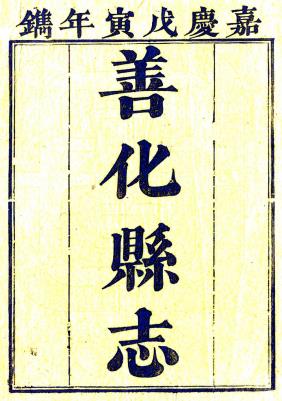 嘉慶戊寅年鐫
善化縣志